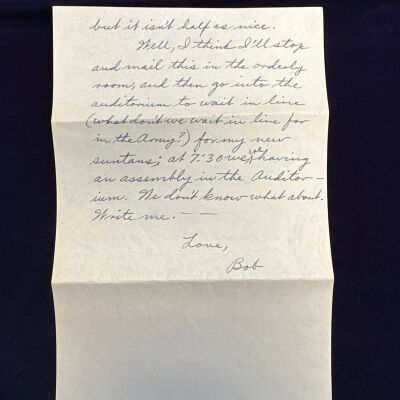 but it isn't half as nice.
Well, I think I'll stop
and mail this in the orderly
room, and then go into the
auditorium to wait in line
(what don't we wait in line for
in the Army?) for my new
suntans; at 7:30 we're having
an assembly in the Auditor-
ium. We don't know what about.
Write me. — —
Love,
Bob